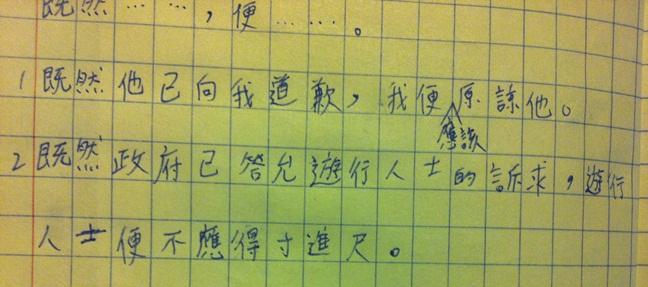 既然……，便……。
1 既然他已向我道歉，我便應該原諒他。
2 既然政府已答允遊行人士的訴求，遊行
人士便不應得寸進尺。